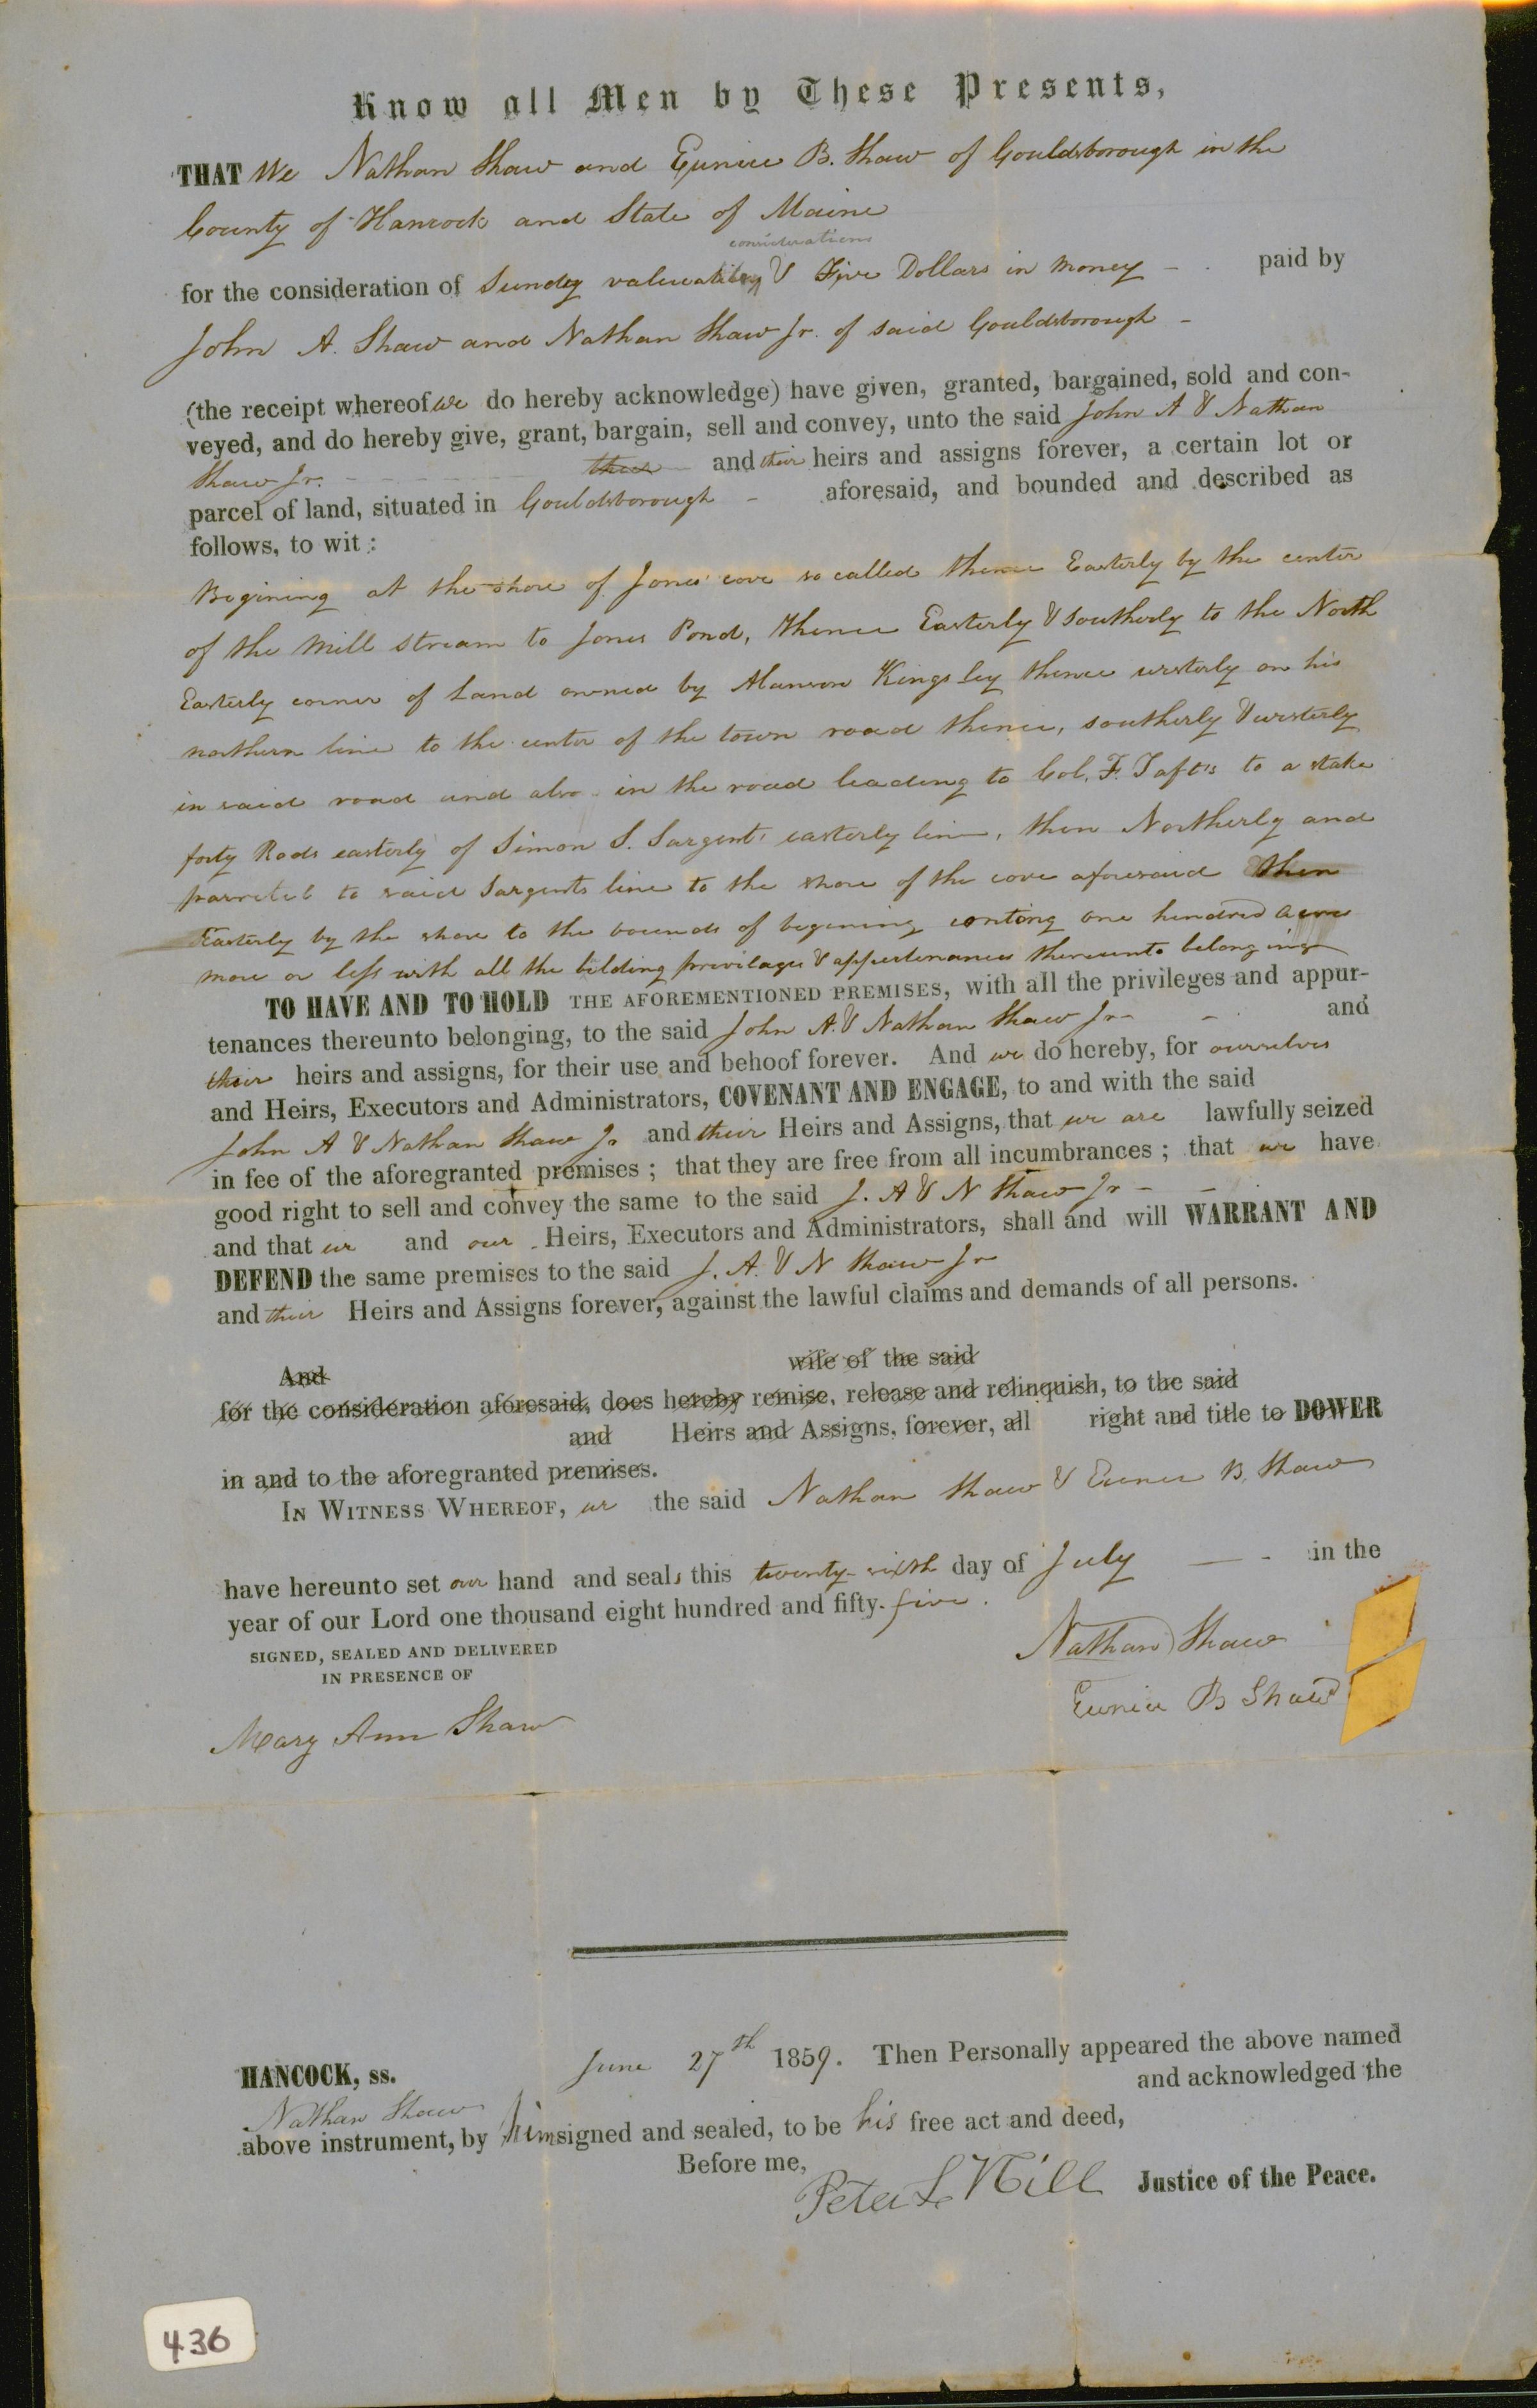 Know all Men by These Presents,
THAT We Nathan Shaw and Eunice B. Shaw of Gouldsborough in the
County of Hancock and State of Maine
considerations
for the consideration of Sundry valueable & Five Dollars in money - . paid by
John A. Shaw and Nathan Shaw Jr. of said Gouldsborough -
(the receipt whereof we do hereby acknowledge) have given, granted, bargained, sold and con-
veyed, and do hereby give, grant, bargain, sell and convey, unto the said John A & Nathan
Shaw Jr. - - - - - - their and their heirs and assigns forever, a certain lot or
parcel of land, situated in Gouldsborough - aforesaid, and bounded and described as
follows, to wit:
Begining at the shore of Jones' cove so called thence Easterly by the center
of the mill stream to Jones Pond, thence Easterly & southerly to the North
Easterly corner of Land owned by Alanson Kingsley thence westerly on his
northern line to the center of the town road thence, southerly & westerly
in said road and also in the road leading to Col. F. Taft's to a stake
forty Rods easterly of Simon S. Sargents easterly line, then Northerly and
parrelel to said Sargents line to the shore of the cove aforesaid then
Easterly by the shore to the bounds of begining conting one hundred acres
more or less with all the bilding privilages & appertenances thereunto belonging
TO HAVE AND TO HOLD THE AFOREMENTIONED PREMISES, with all the privileges and appur-
tenances thereunto belonging, to the said John A. & Nathan Shaw Jr - - and
their heirs and assigns, for their use and behoof forever. And we do hereby, for ourselves
and Heirs, Executors and Administrators, COVENANT AND ENGAGE, to and with the said
John A & Nathan Shaw Jr and their Heirs and Assigns, that we are lawfully seized
in fee of the aforegranted premises; that they are free from all incumbrances; that we have
good right to sell and convey the same to the said J. A & N Shaw Jr - -
and that we and our Heirs, Executors and Administrators, shall and will WARRANT AND
DEFEND the same premises to the said J. A. & N Shaw Jr
and their Heirs and Assigns forever, against the lawful claims and demands of all persons.
And wife of the said
for the consideration aforesaid, does hereby remise, release and relinquish, to the said
and Heirs and Assigns, forever, all right and title to DOWER
in and to the aforegranted premises.
IN WITNESS WHEREOF, we the said Nathan Shaw & Eunice B. Shaw
have hereunto set our hand and seals this twenty-sixth day of July - - in the
year of our Lord one thousand eight hundred and fifty-five.
SIGNED, SEALED AND DELIVERED
IN PRESENCE OF
Nathan Shaw
Eunice B Shaw
Mary Ann Shaw
HANCOCK, ss. June 27th 1859. Then Personally appeared the above named
Nathan Shaw and acknowledged the
above instrument, by him signed and sealed, to be his free act and deed,
Before me,
Peter L Hill Justice of the Peace.
436